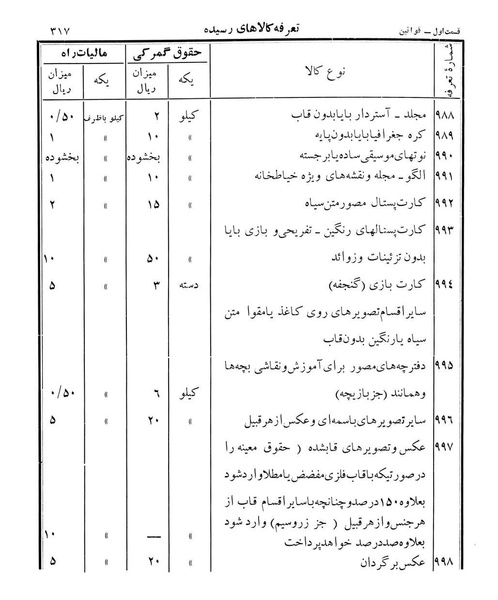 قسمت اول ــ قوانین تعرفه کالاهای رسیده ۳۱۷
شمارهٔ تعرفه نوع کالا حقوق گمرکی مالیات راه
یکه میزان ریال یکه میزان ریال
۹۸۸ مجلد ــ آستردار یا یا بدون قاب کیلو ۲ کیلو باظرف ۰/۵۰
۹۸۹ کره جغرافیا با یا بدون پایه » ۱۰ » ۱
۹۹۰ نوتهای موسیقی ساده یا برجسته » بخشوده » بخشوده
۹۹۱ الگو ــ مجله و نقشه‌های ویژه خیاطخانه » ۱۰ » ۱
۹۹۲ کارت پستال مصور متن سیاه » ۱۵ » ۲
۹۹۳ کارت پستالهای رنگین ــ تفریحی و بازی با یا
بدون تزئینات و زوائد » ۵۰ » ۱۰
۹۹۴ کارت بازی (گنجفه) دسته ۳ » ۵
سایر اقسام تصویرهای روی کاغذ یا مقوا متن
سیاه یا رنگین بدون قاب
۹۹۵ دفترچه‌های مصور برای آموزش و نقاشی بچه‌ها
و همانند (جز بازیچه) کیلو ۶ » ۰/۵۰
۹۹۶ سایر تصویرهای باسمه‌ای و عکس از هر قبیل » ۲۰ » ۵
۹۹۷ عکس و تصویرهای قاب شده ( حقوق معینه را
در صورتیکه با قاب فلزی مفضض یا مطلا وارد شود
بعلاوه ۱۵۰ درصد و چنانچه با سایر اقسام قاب از
هر جنس و از هر قبیل ( جز زر و سیم) وارد شود
بعلاوه صد درصد خواهد پرداخت » ــ » ۱۰
۹۹۸ عکس برگردان » ۲۰ » ۵